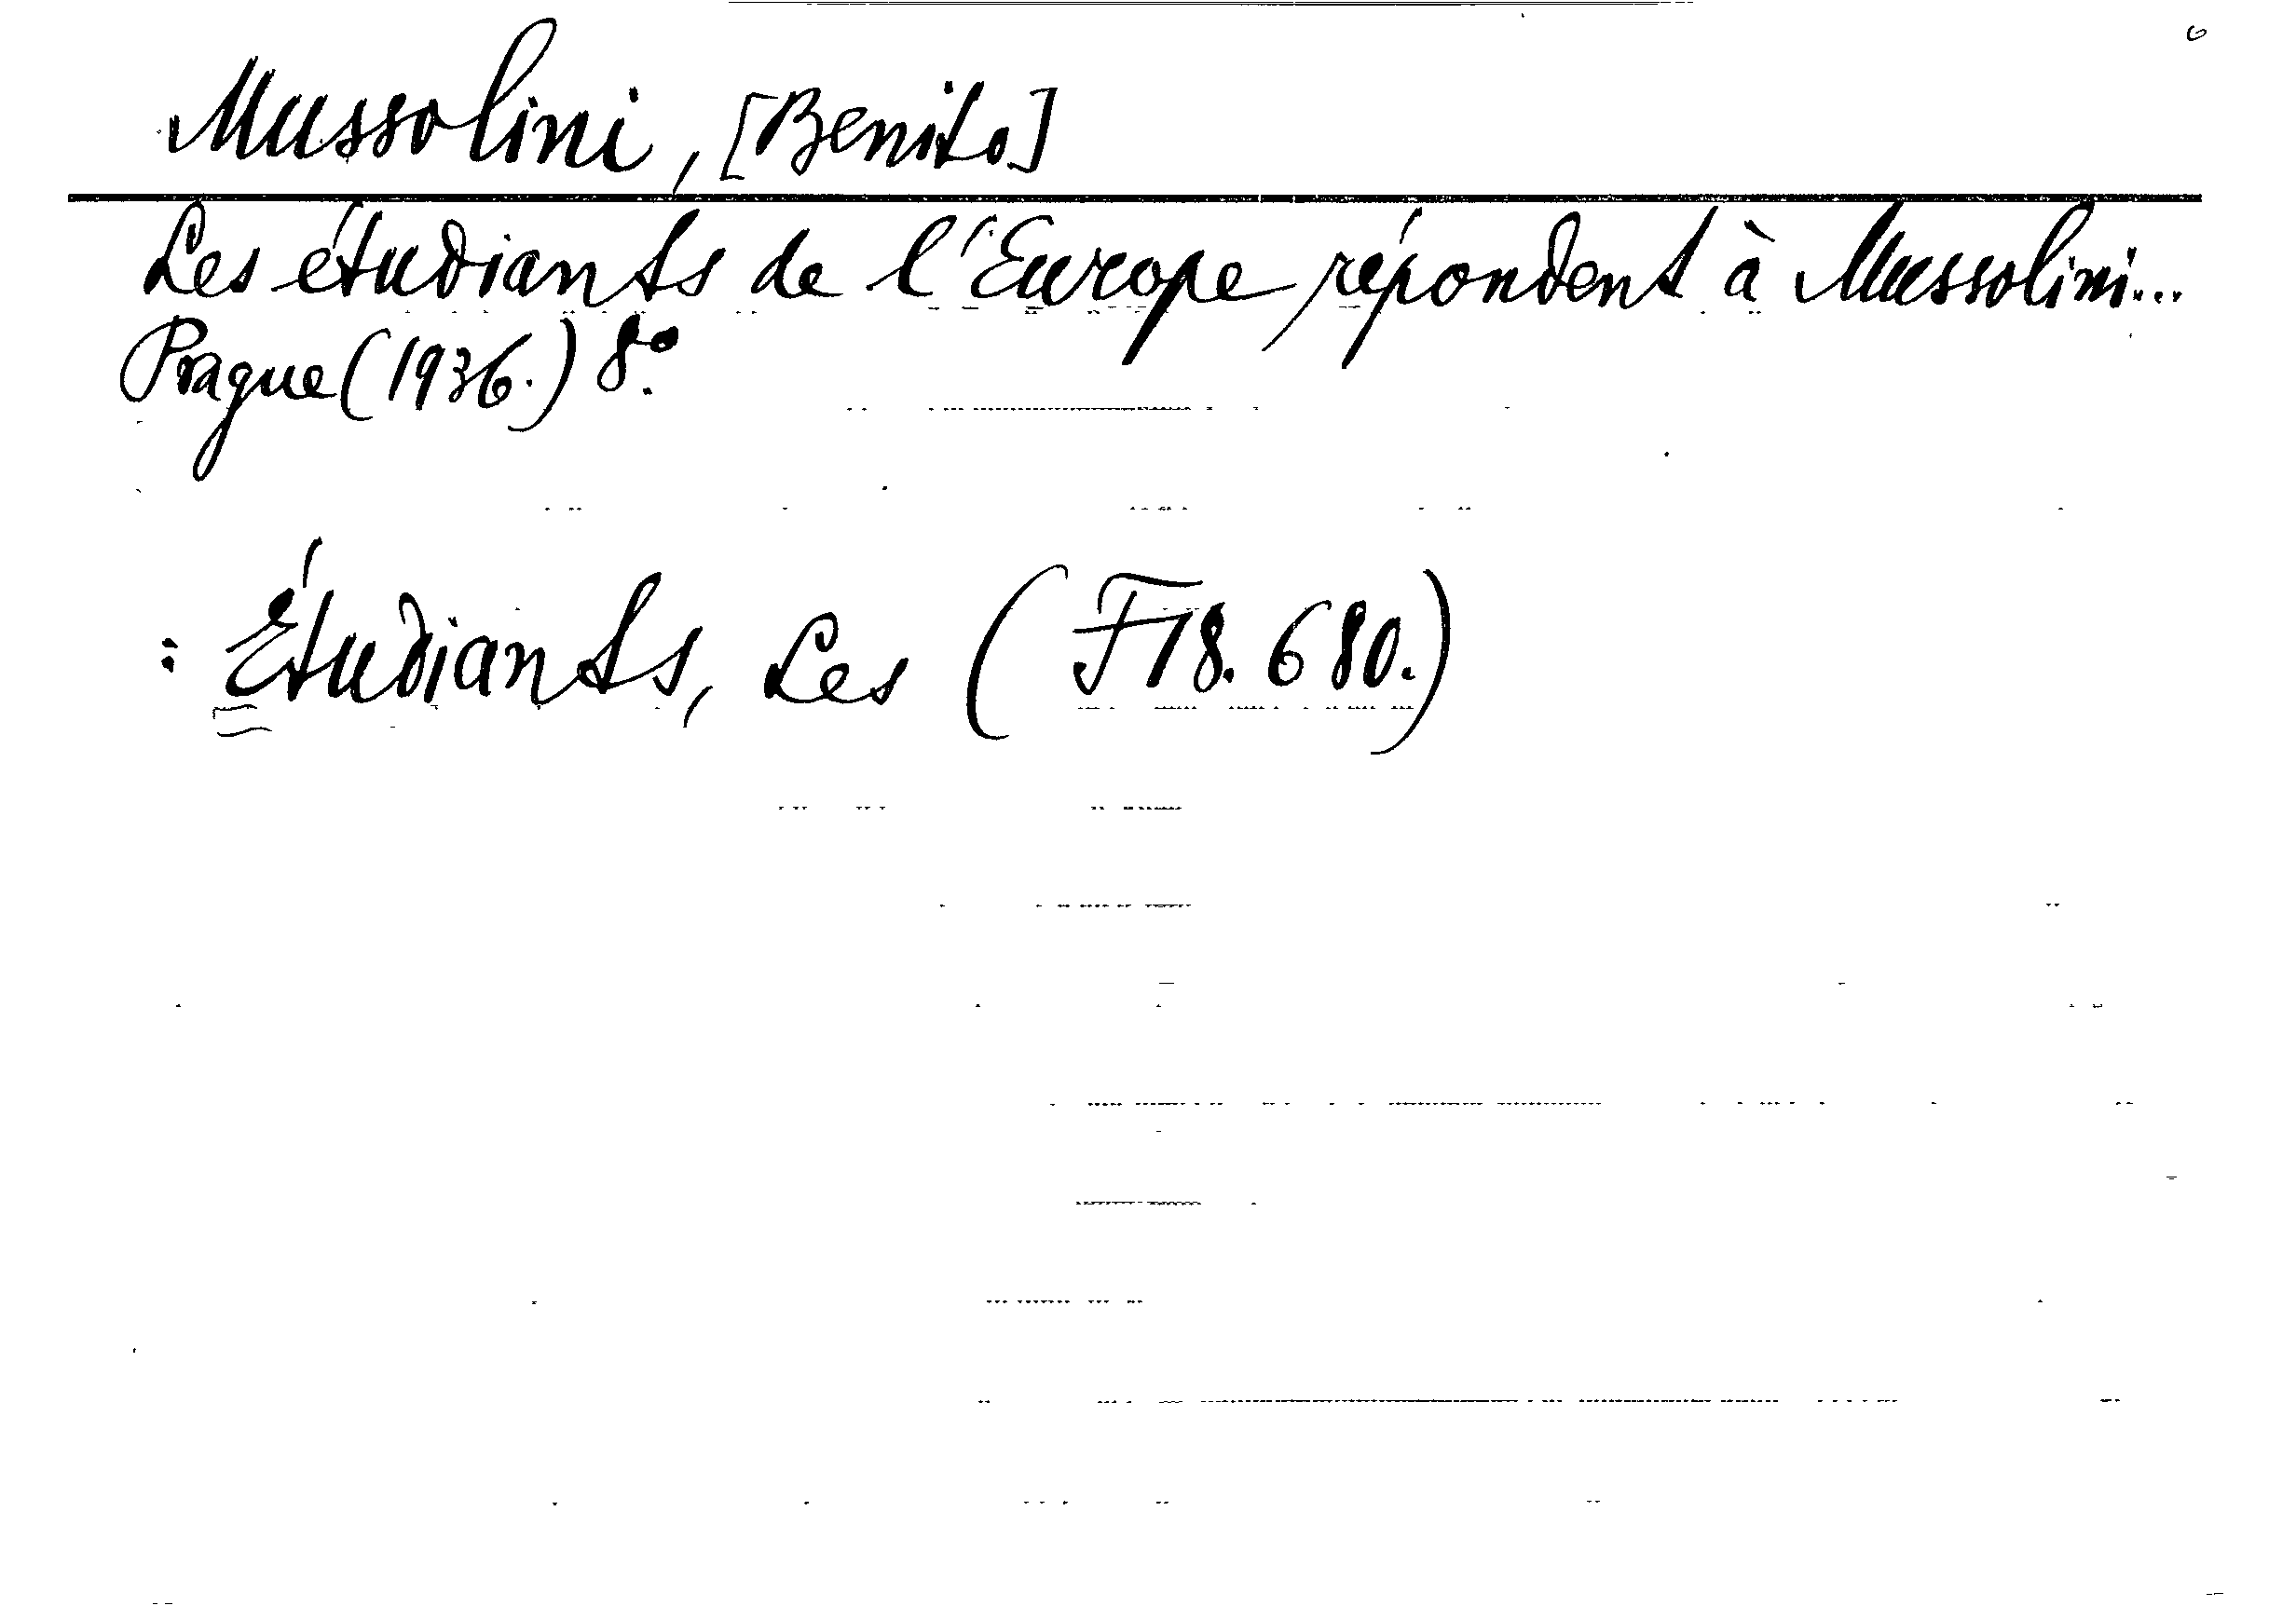 Mussolini, [Benito]
Les étudiants de l'Europe répondent à Mussolini...
Prague (1936.) 8.º
: Étudiants, Les (F18.680.)